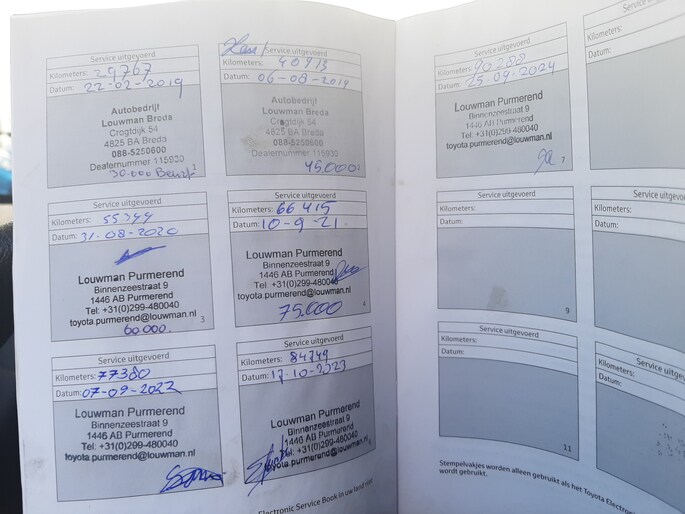 Service uitgevoerd
Kilometers: 29767
Datum: 22-02-2019
Autobedrijf
Louwman Breda
Crogtdijk 54
4825 BA Breda
088-5250600
Dealernummer 115920
30.000
Service uitgevoerd
Kilometers: 40913
Datum: 06-08-2019
Autobedrijf
Louwman Breda
Crogtdijk 54
4825 BA Breda
088-5250600
Dealernummer 115920
45.000
Service uitgevoerd
Kilometers: 55344
Datum: 31-08-2020
Louwman Purmerend
Binnenzeestraat 9
1446 AB Purmerend
Tel: +31(0)299-480040
toyota.purmerend@louwman.nl
60.000. 3
Service uitgevoerd
Kilometers: 66415
Datum: 10-9-21
Louwman Purmerend
Binnenzeestraat 9
1446 AB Purmerend
Tel: +31(0)299-480040
toyota.purmerend@louwman.nl
75.000 4
Service uitgevoerd
Kilometers: 77380
Datum: 07-09-2022
Louwman Purmerend
Binnenzeestraat 9
1446 AB Purmerend
Tel: +31(0)299-480040
toyota.purmerend@louwman.nl
Service uitgevoerd
Kilometers: 84749
Datum: 17-10-2023
Louwman Purmerend
Binnenzeestraat 9
1446 AB Purmerend
Tel: +31(0)299-480040
toyota.purmerend@louwman.nl
Electronic Service Book in uw land niet
Service uitgevoerd
Kilometers: 90288
Datum: 25-09-2024
Louwman Purmerend
Binnenzeestraat 9
1446 AB Purmerend
Tel: +31(0)299-480040
toyota.purmerend@louwman.nl
7
Service uitgevoerd
Kilometers:
Datum:
9
Service uitgevoerd
Kilometers:
Datum:
11
Kilometers:
Datum:
Kilometers:
Datum:
Kilometers:
Datum:
Stempelvakjes worden alleen gebruikt als het Toyota Electronic
wordt gebruikt.